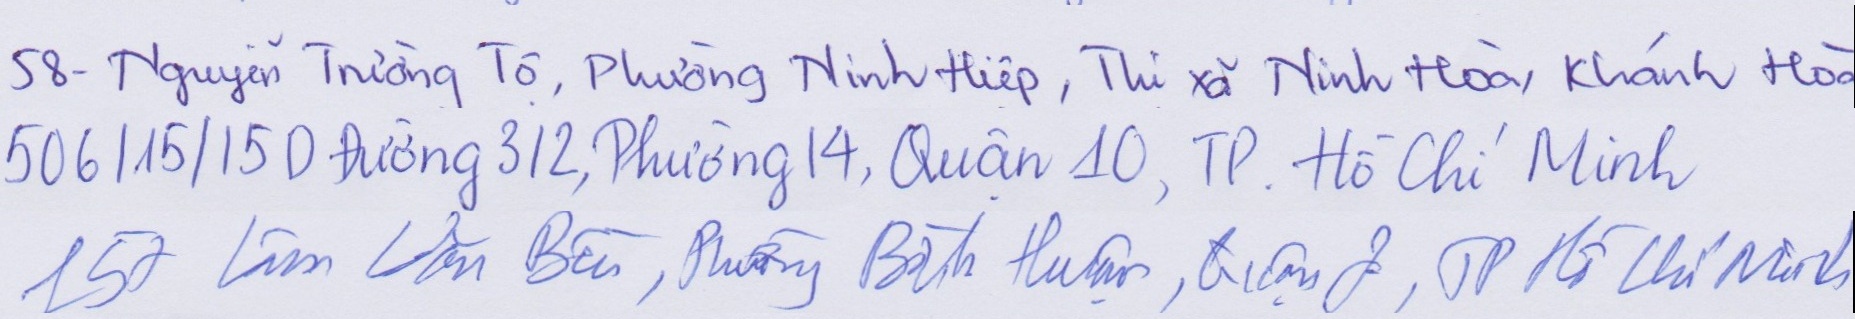 58- Nguyễn Trường Tộ, Phường Ninh Hiệp, Thị xã Ninh Hòa, Khánh Hòa
506/15/15D Đường 3/2, Phường 14, Quận 10, TP. Hồ Chí Minh
157 Lâm Văn Bền, Phường Bình Thuận, Quận 7, TP Hồ Chí Minh